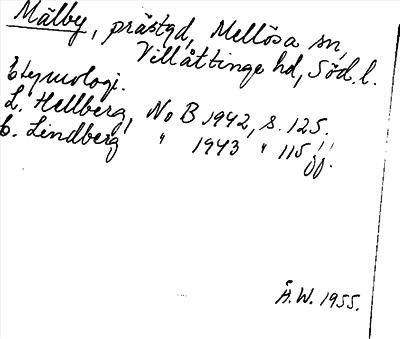 Mälby, prästgd, Mellösa sn,
Villåttinge hd, Söd. l.
Etymologi.
L. Hellberg, No B 1942, s. 125.
C. Lindberg " 1943 " 115 ff.
Å.W. 1955.